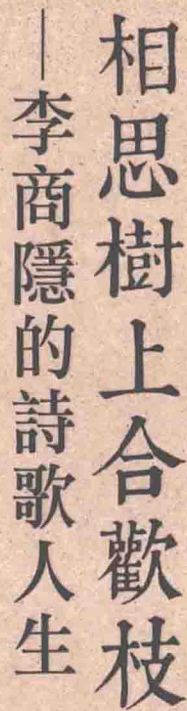 相思樹上合歡枝
——李商隱的詩歌人生